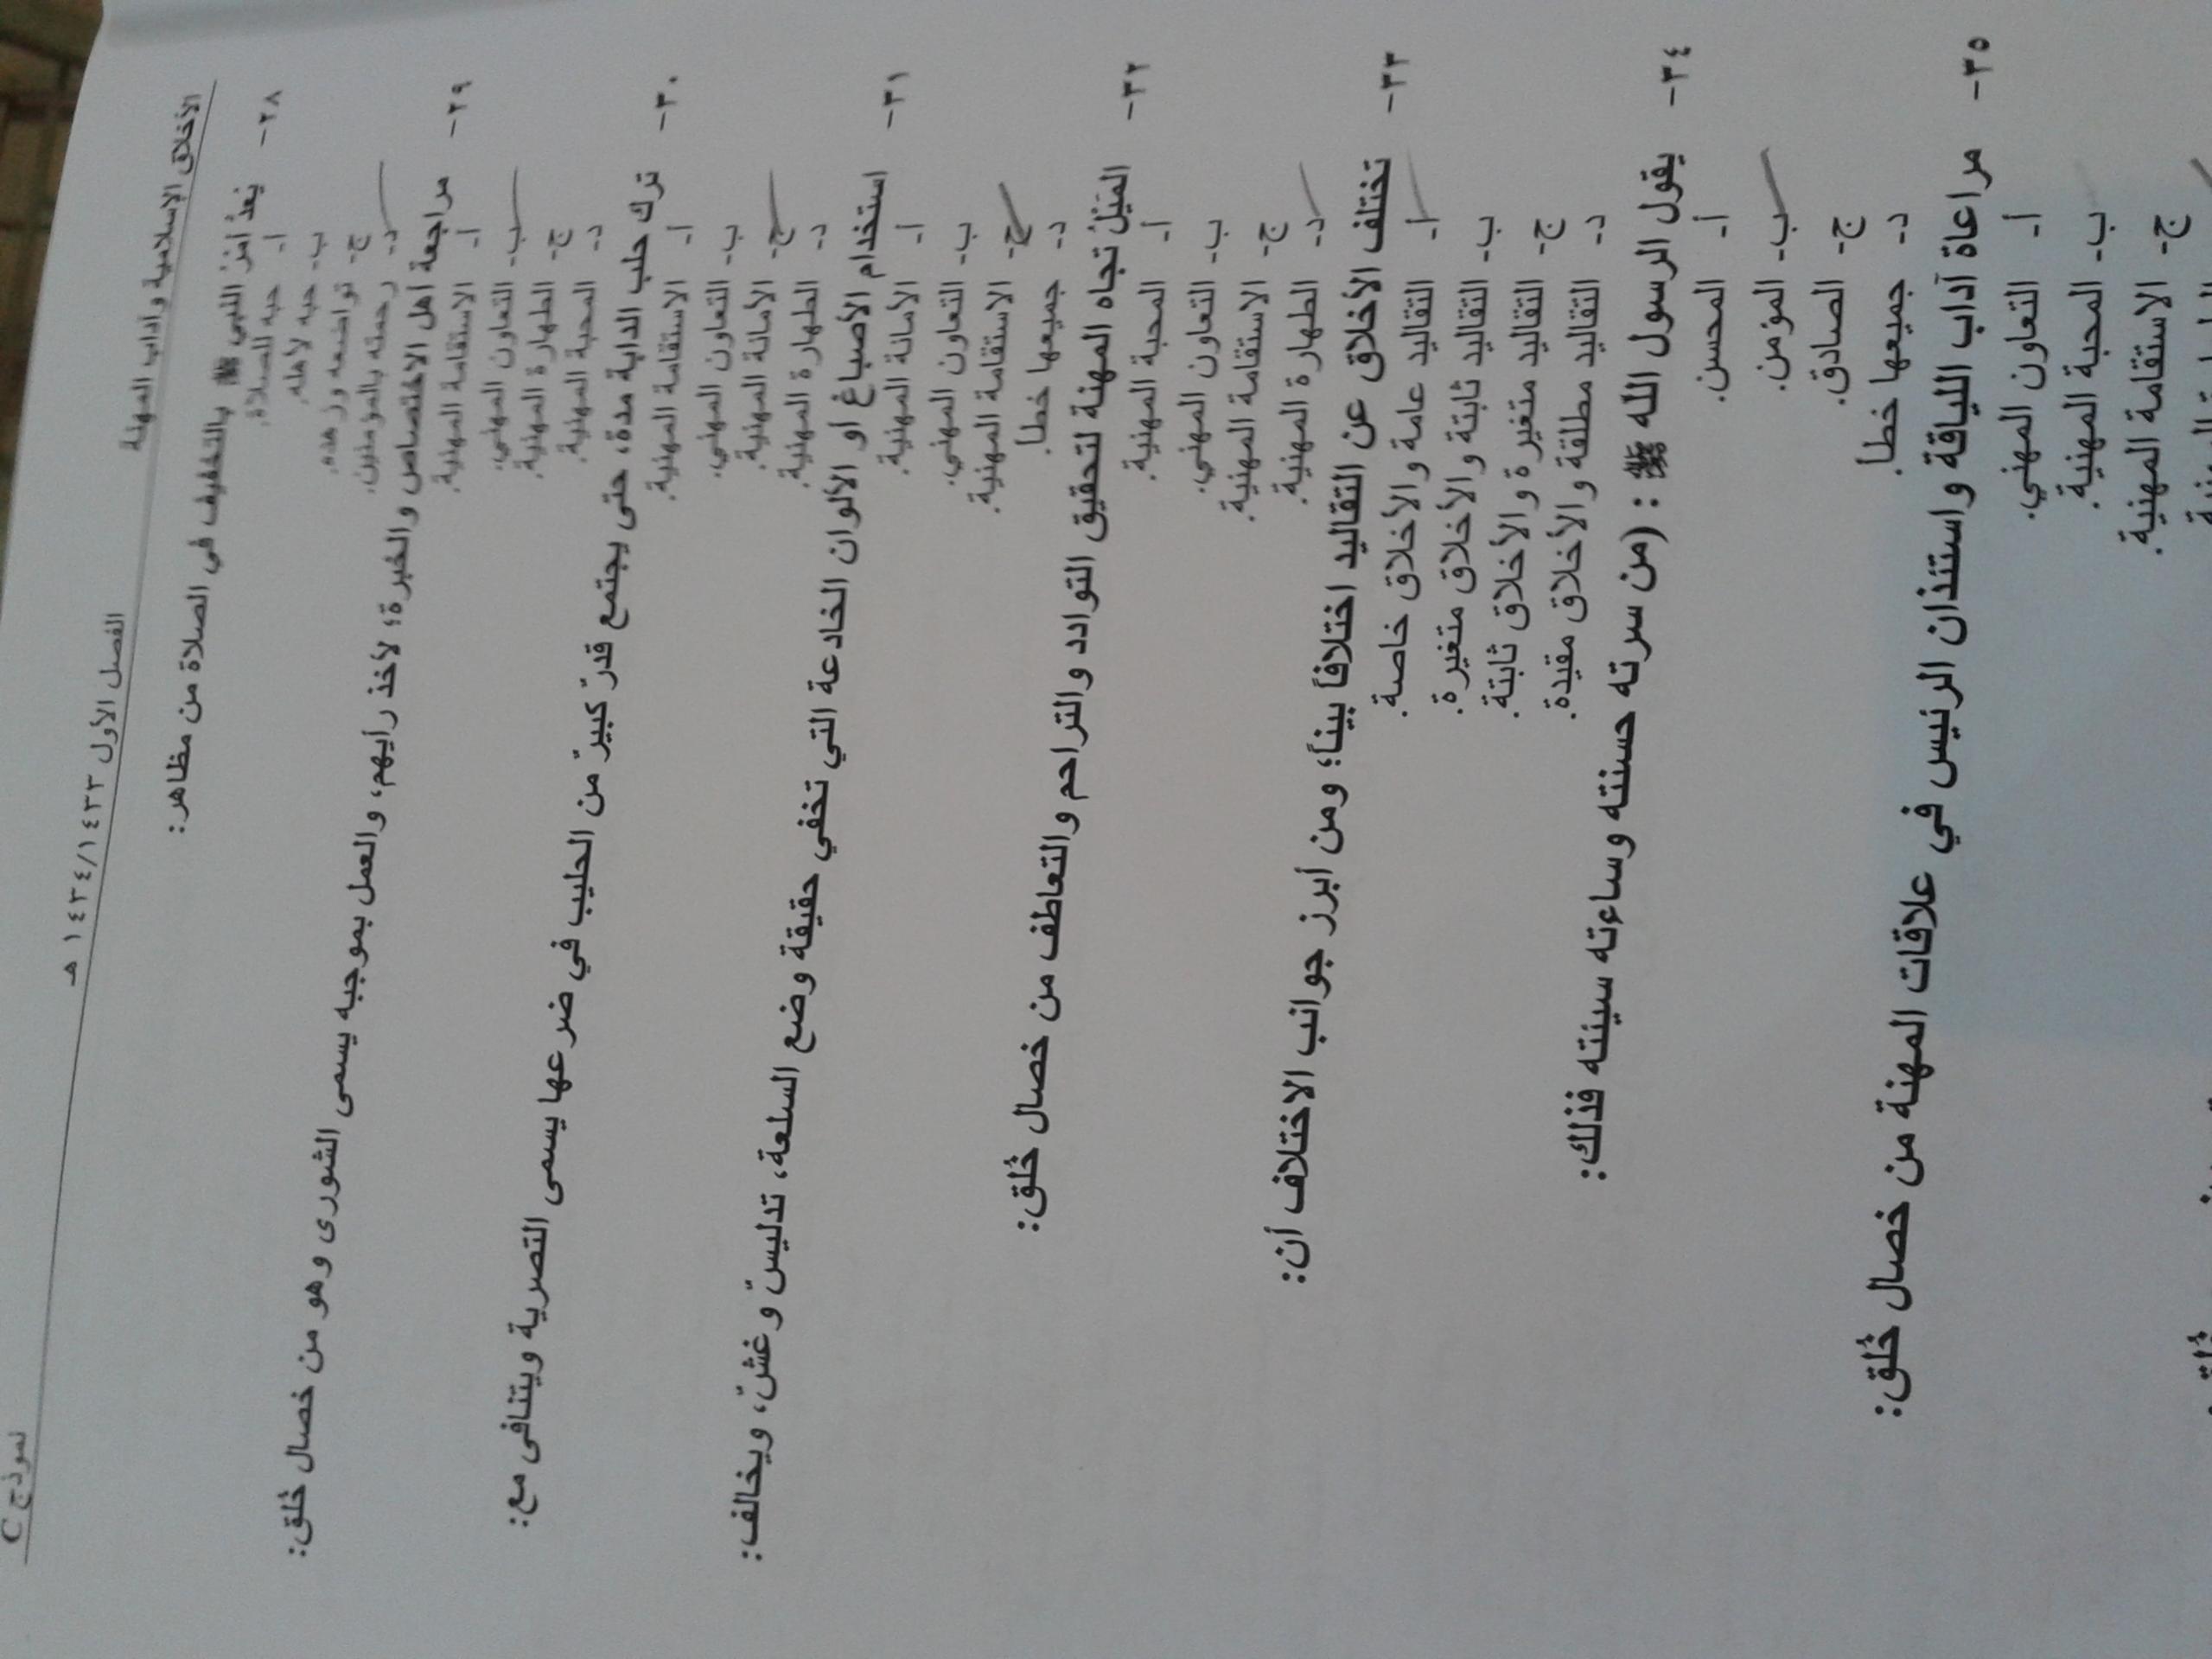 الأخلاق الإسلامية وآداب المهنة
الفصل الأول ١٤٣٤/١٤٣٣ هـ
نموذج C
٢٨- يعدّ أمرُ النبي ﷺ بالتخفيف في الصلاة من مظاهر:
أ- حبه للصلاة.
ب- حبه لأهله.
ج- تواضعه وزهده.
د- رحمته بالمؤمنين.
٢٩- مراجعة أهل الاختصاص والخبرة؛ لأخذ رأيهم، والعمل بموجبه يسمى الشورى وهو من خصال خُلق:
أ- الاستقامة المهنية.
ب- التعاون المهني.
ج- الطهارة المهنية.
د- المحبة المهنية.
٣٠- ترك حلب الدابة مدة، حتى يجتمع قدرٌ كبيرٌ من الحليب في ضرعها يسمى التصرية ويتنافى مع:
أ- الاستقامة المهنية.
ب- التعاون المهني.
ج- الأمانة المهنية.
د- الطهارة المهنية.
٣١- استخدام الأصباغ أو الألوان الخادعة التي تخفي حقيقة وضع السلعة، تدليسٌ وغشٌ، ويخالف:
أ- الأمانة المهنية.
ب- التعاون المهني.
ج- الاستقامة المهنية.
د- جميعها خطأ.
٣٢- الميْلُ تجاه المهنة لتحقيق التوادد والتراحم والتعاطف من خصال خُلق:
أ- المحبة المهنية.
ب- التعاون المهني.
ج- الاستقامة المهنية.
د- الطهارة المهنية.
٣٣- تختلف الأخلاق عن التقاليد اختلافاً بيناً؛ ومن أبرز جوانب الاختلاف أن:
أ- التقاليد عامة والأخلاق خاصة.
ب- التقاليد ثابتة والأخلاق متغيرة.
ج- التقاليد متغيرة والأخلاق ثابتة.
د- التقاليد مطلقة والأخلاق مقيدة.
٣٤- يقول الرسول الله ﷺ : (من سرته حسنته وساءته سيئته فذلك:
أ- المحسن.
ب- المؤمن.
ج- الصادق.
د- جميعها خطأ.
٣٥- مراعاة آداب اللياقة واستئذان الرئيس في علاقات المهنة من خصال خُلق:
أ- التعاون المهني.
ب- المحبة المهنية.
ج- الاستقامة المهنية.